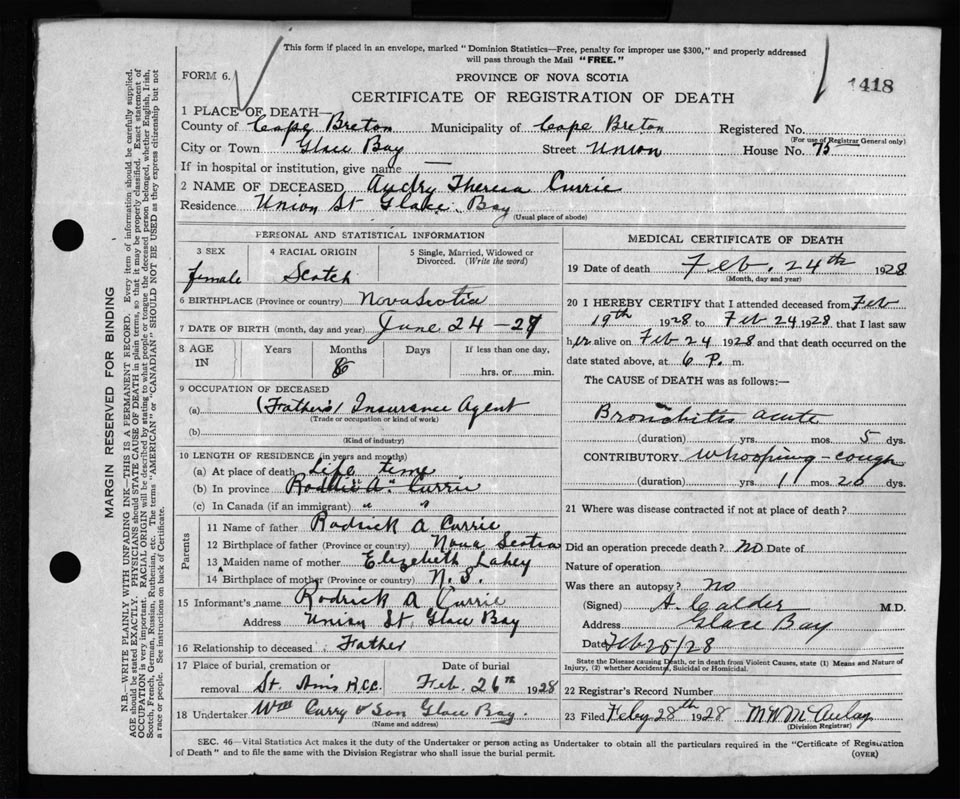 This form if placed in an envelope, marked "Dominion Statistics—Free, penalty for improper use $300," and properly addressed
will pass through the Mail "FREE."
FORM 6.
PROVINCE OF NOVA SCOTIA
1418
CERTIFICATE OF REGISTRATION OF DEATH
1 PLACE OF DEATH—
County of Cape Breton Municipality of Cape Breton Registered No.
(For use of Registrar General only)
City or Town Glace Bay Street Union House No. 75
If in hospital or institution, give name —
2 NAME OF DECEASED Audry Theresa Currie
Residence Union St Glace Bay
(Usual place of abode)
PERSONAL AND STATISTICAL INFORMATION
3 SEX 4 RACIAL ORIGIN 5 Single, Married, Widowed or
Divorced. (Write the word)
female Scotch
6 BIRTHPLACE (Province or country) Nova Scotia
7 DATE OF BIRTH (month, day and year) June 24-27
8 AGE Years Months Days If less than one day,
IN 8 hrs. or min.
9 OCCUPATION OF DECEASED
(a) (Father's) Insurance Agent
(Trade or occupation or kind of work)
(b)
(Kind of industry)
10 LENGTH OF RESIDENCE (in years and months)
(a) At place of death Life time
(b) In province " A " Currie
(c) In Canada (if an immigrant) " "
Parents
11 Name of father Rodrick A Currie
12 Birthplace of father (Province or country) Nova Scotia
13 Maiden name of mother Elizabeth Lahey
14 Birthplace of mother (Province or country) N.S.
15 Informant's name Rodrick A Currie
Address Union St Glace Bay
16 Relationship to deceased Father
17 Place of burial, cremation or Date of burial
removal St. Anns R.C.C. Feb. 26th 1928
18 Undertaker Wm Curry & Son Glace Bay.
(Name and address)
MEDICAL CERTIFICATE OF DEATH
19 Date of death Feb. 24th 1928
(Month, day and year)
20 I HEREBY CERTIFY that I attended deceased from Feb
19th 1928 to Feb 24 1928 that I last saw
her alive on Feb 24 1928 and that death occurred on the
date stated above, at 6 P. m.
The CAUSE of DEATH was as follows:—
Bronchitis acute
(duration) yrs. mos. 5 dys.
CONTRIBUTORY Whooping-cough
(duration) yrs. 1 mos. 20 dys.
21 Where was disease contracted if not at place of death?
Did an operation precede death? no Date of
Nature of operation
Was there an autopsy? no
(Signed) A. Calder M.D.
Address Glace Bay
Date Feb 25/28
State the Disease causing Death, or in death from Violent Causes, state (1) Means and Nature of
Injury, (2) whether Accidental, Suicidal or Homicidal.
22 Registrar's Record Number
23 Filed Feby 28th 1928 M W McAulay
(Division Registrar)
SEC. 46—Vital Statistics Act makes it the duty of the Undertaker or person acting as Undertaker to obtain all the particulars required in the "Certificate of Registration
of Death" and to file the same with the Division Registrar who shall issue the burial permit.
(OVER)
MARGIN RESERVED FOR BINDING
N.B.—WRITE PLAINLY WITH UNFADING INK—THIS IS A PERMANENT RECORD. Every item of information should be carefully supplied.
AGE should be stated EXACTLY. PHYSICIANS should STATE CAUSE OF DEATH in plain terms, so that it may be properly classified. Exact statement of
OCCUPATION is very important. RACIAL ORIGIN will be described by stating to what people or tongue the deceased person belonged, whether English, Irish,
Scotch, French, German, Russian, Ruthenian, etc. The terms "AMERICAN" or "CANADIAN" SHOULD NOT BE USED as they express citizenship but not
a race or people. See instructions on back of Certificate.